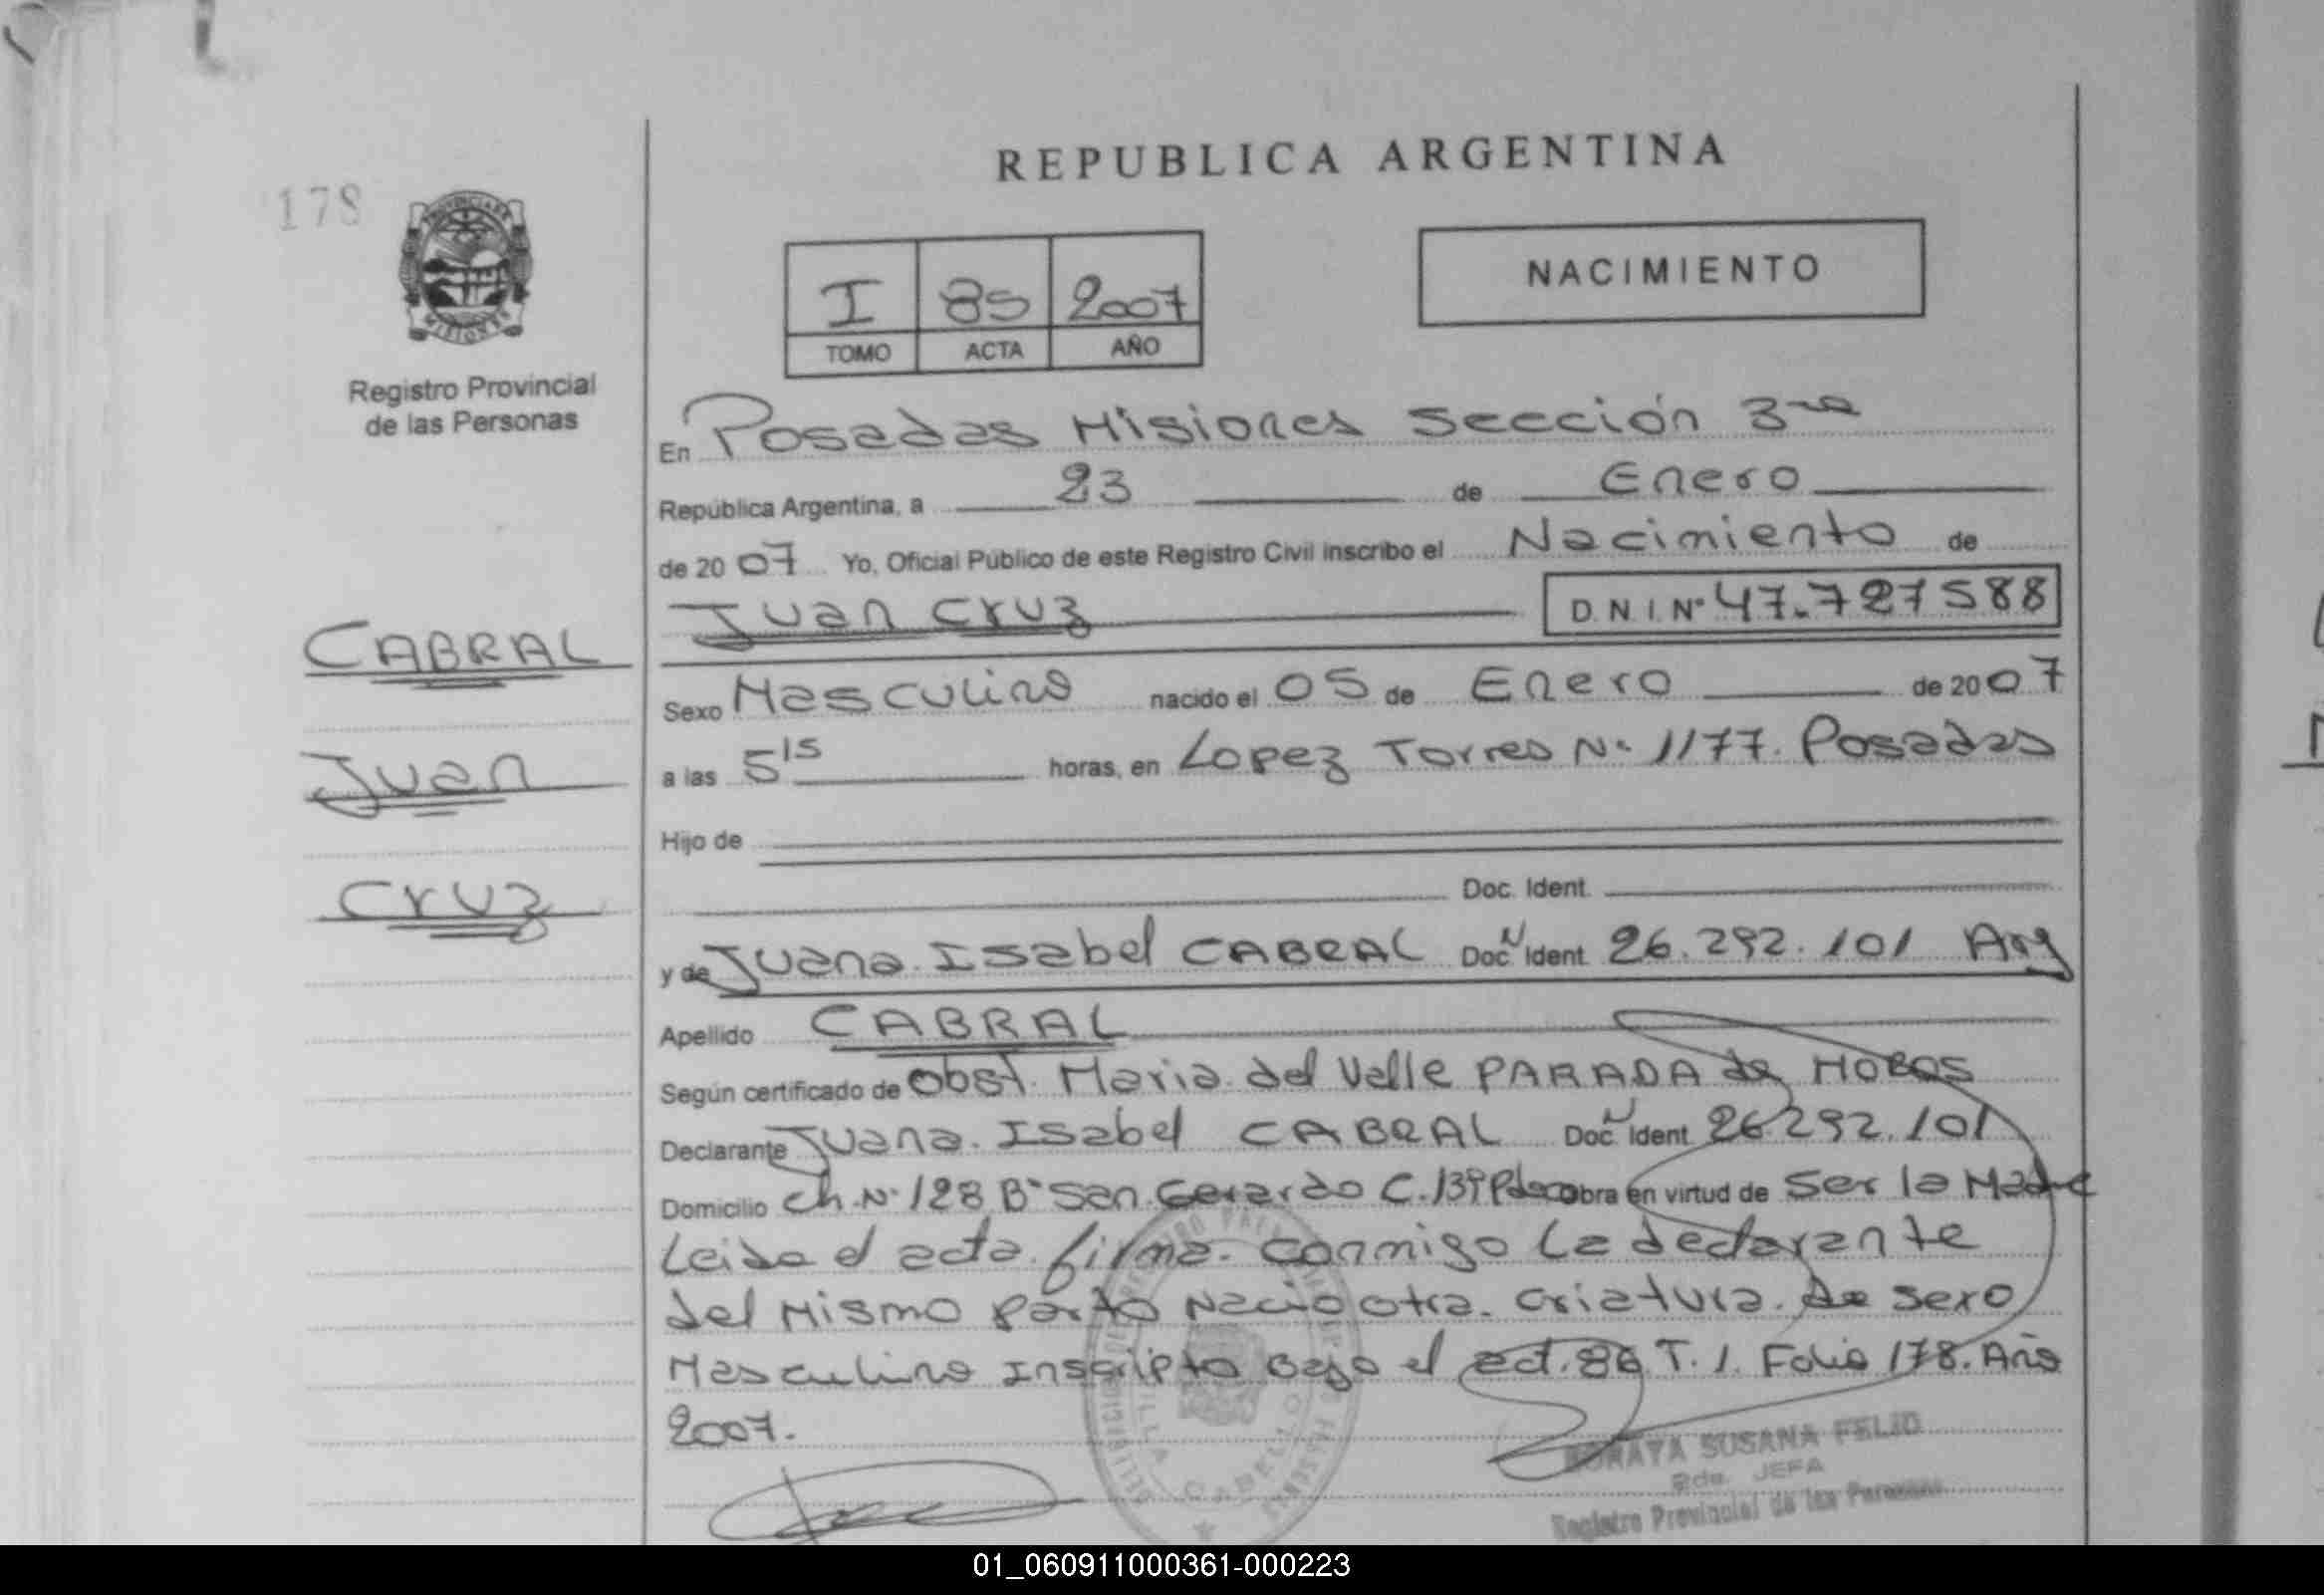 REPUBLICA ARGENTINA
178
PROVINCIA DE
MISIONES
Registro Provincial
de las Personas
I 85 2007
TOMO ACTA AÑO
NACIMIENTO
En Posadas Misiones Sección 3ra
República Argentina, a 23 de Enero
de 2007 Yo, Oficial Público de este Registro Civil inscribo el Nacimiento de
Juan Cruz D.N.I. Nº 47.727588
CABRAL
Juan
Cruz
Sexo Masculino nacido el 05 de Enero de 2007
a las 5 15 horas, en Lopez Torres Nº 1177. Posadas
Hijo de
Doc. Ident.
y de Juana Isabel CABRAL Doc. N Ident. 26.292.101 Arg
Apellido CABRAL
Según certificado de Obst. Maria del Valle PARADA de
Declarante Juana Isabel CABRAL Doc. N Ident. 26292.101
Domicilio Ch. Nº 128 Bº San Gerardo C. 139 obra en virtud de Ser la Madre
Leida el acta firma conmigo la declarante
del Mismo parto Nacio otra criatura de sexo
Masculino Inscripto Bajo el act. 86 T. 1. Folio 178. Año
2007.
VILLA CABELLO
SORAYA SUSANA FELIO
JEFA
Registro Provincial de las Personas
01_060911000361-000223